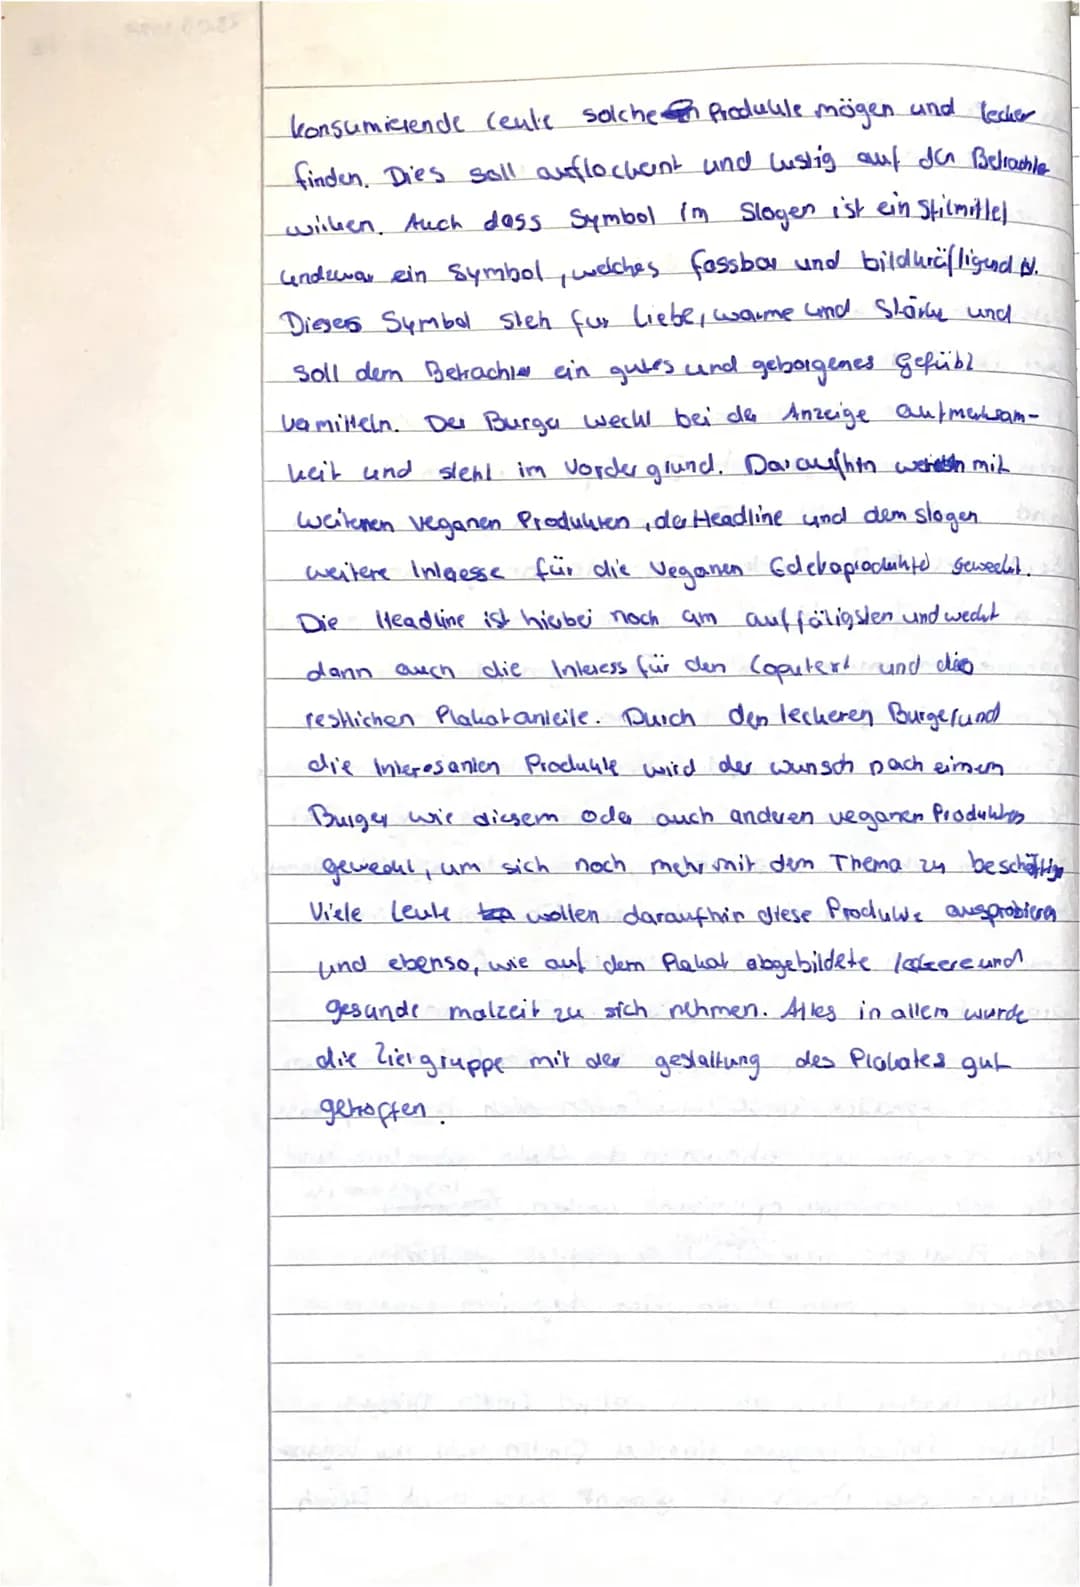 konsumierende Leute solche Produkte mögen und lecker
finden. Dies soll auflockernt und lustig auf den Betrachte
wirken. Auch dass Symbol im Slogen ist ein Stilmittel
undzwar ein Symbol, welches fassbar und bildkräftigend ist.
Dieses Symbol steh fur Liebe, warme und Stärke und
soll dem Betrachter ein gutes und geborgenes gefühl
vermitteln. Der Burger weckt bei der Anzeige aufmerksam-
keit und steht im Vordergrund. Daraufhin mit
weiteren veganen Produkten, der Headline und dem slogen
weitere Intresse für die Veganen Edekaprodukte geweckt.
Die Headline ist hierbei noch am auffäligsten und weckt
dann auch die Interess für den Copytext und die
restlichen Plakatanteile. Durch den leckeren Burger und
die Interesanten Produkte wird der wunsch nach einem
Burger wie diesem oder auch anderen veganen Produkten
geweckt, um sich noch mehr mit dem Thema zu beschäftige
Viele Leute wollen daraufhin diese Produkte ausprobieren
und ebenso, wie auf dem Plakat abgebildete leckere und
gesunde malzeit zu sich nehmen. Alles in allem wurde
die Ziergruppe mit der gestaltung des Plakates gut
getroffen.